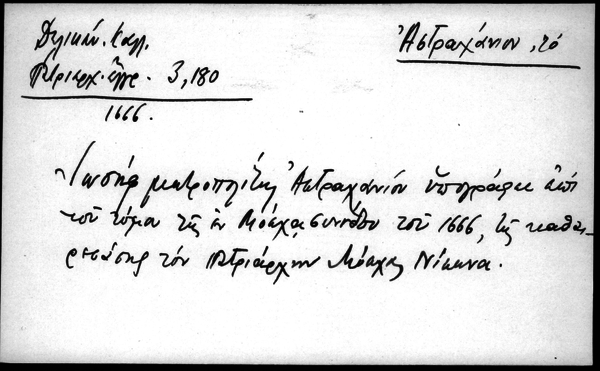 Δελικάν. Καλ.
Πατριαρχ. ἔγγρ. 3,180
1666.
Ἀστραχάνιον, τό
Ἰωσὴφ μητροπολίτης Ἀστραχανίου ὑπογράφει ἐπὶ
τοῦ τόμου τῆς ἐν Μόσχᾳ συνόδου τοῦ 1666, τῆς καθαι-
ρεσάσης τὸν πατριάρχην Μόσχας Νίκωνα.